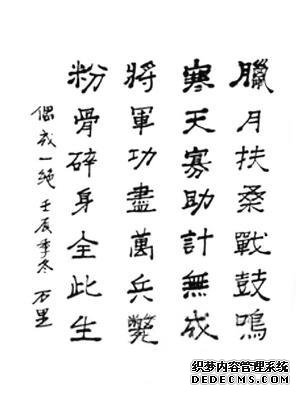 臘月扶桑戰鼓鳴
寒天寡助計無成
將軍功盡萬兵斃
粉骨碎身全此生
偶成一絶 壬辰季冬 万里
织梦内容管理系统
DEDECMS.COM